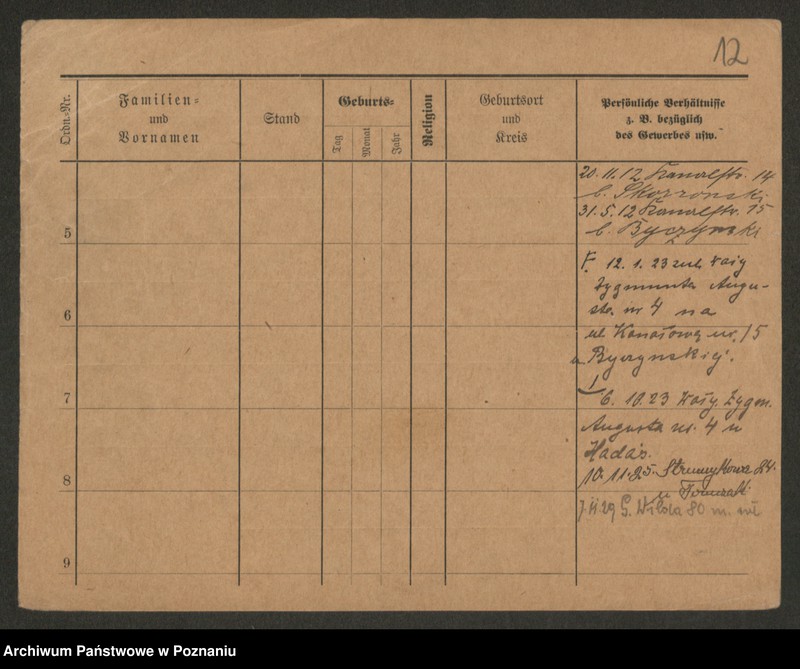 12
Ordn.-Nr.
Familien-
und
Vornamen
Stand
Geburts-
Tag
Monat
Jahr
Religion
Geburtsort
und
Kreis
Persönliche Verhältnisse
z. B. bezüglich
des Gewerbes usw.
20. 11. 12 Kanalstr. 14
b. Skorzonski
31. 5. 12 Kanalstr. 15
b. Byczynski
5
12. 1. 23
Zygmunta Augu-
sta nr 4 na
6
ul. Kanałową nr. 15
u Byczynskiej.
7
6. 10. 23 Wały Zygm.
Augusta nr. 4 u
Hadás.
10. 11. 25. Strumykowa 24.
8
u
29 G. Wilda 80 m.
9
Archiwum Państwowe w Poznaniu